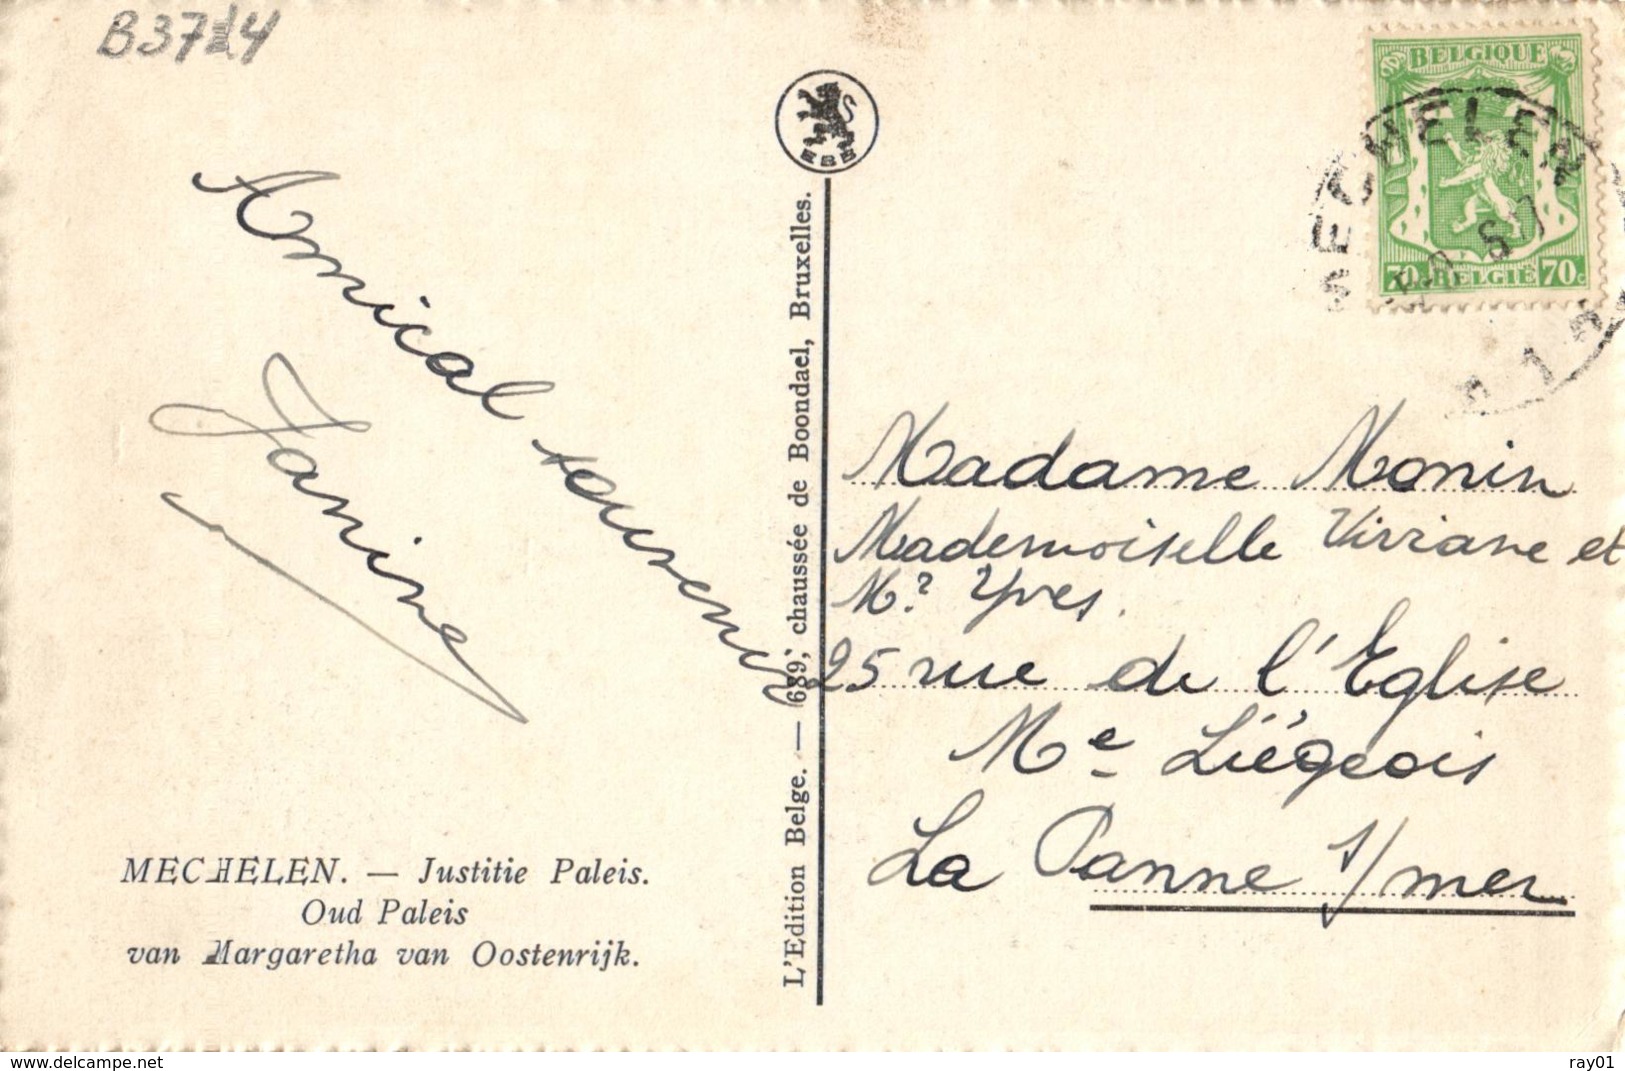 B3714
Amical souvenir
Janine
MECHELEN. — Justitie Paleis.
Oud Paleis
van Margaretha van Oostenrijk.
EBE
L'Edition Belge. — 689, chaussée de Boondael, Bruxelles.
BELGIQUE
70 BELGIE 70c
MECHELEN
Madame Monin
Mademoiselle Viviane et
Mr Yves.
25 rue de l'Eglise
Me Liégeois
La Panne s/mer
www.delcampe.net
ray01